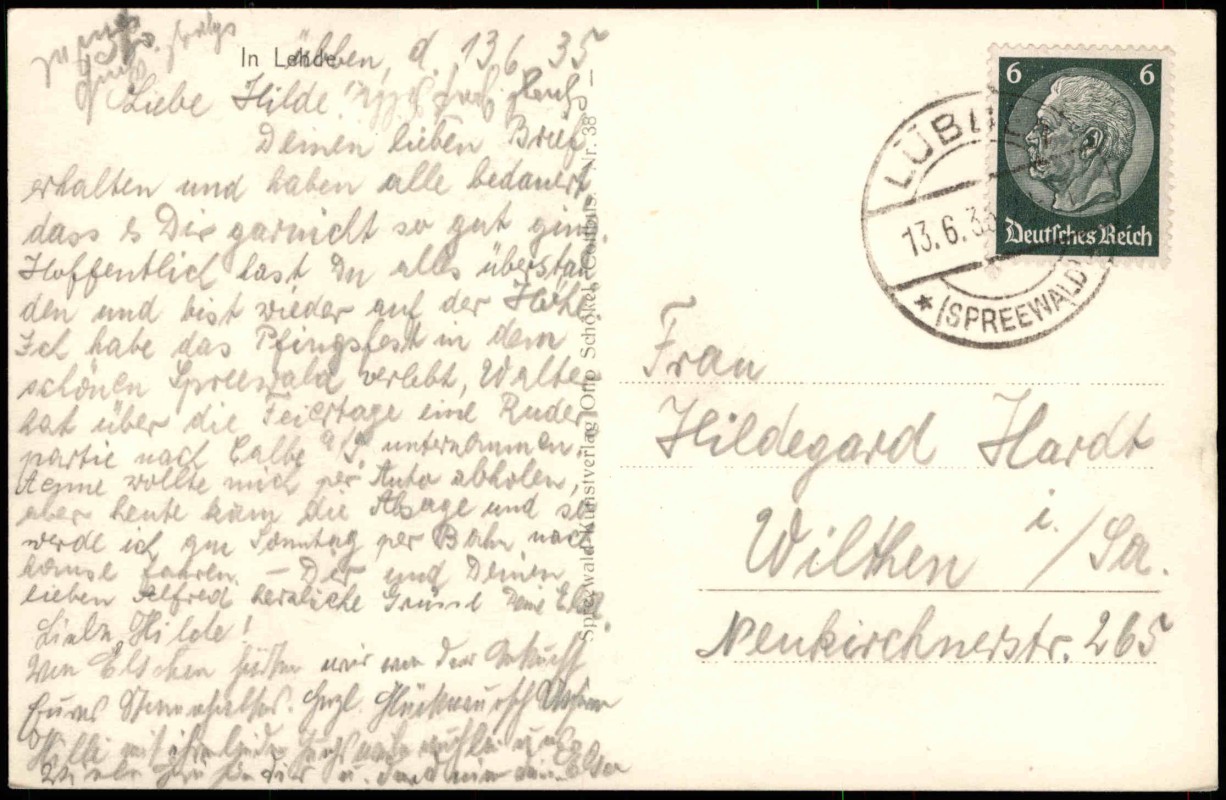 In Lehde
Lübben, d. 13.6.35
Liebe Hilde!
Deinen lieben Brief
erhalten und haben alle bedauert
dass es Dir garnicht so gut ging.
Hoffentlich hast Du alles überstan
den und bist wieder auf der Höhe.
Ich habe das Pfingsfest in dem
schönen Spreewald verlebt, Walter
hat über die Feiertage eine Ruder
partie nach Calbe a/S unternommen
wollte mich per Auto abholen,
aber heute kam die Absage und so
werde ich am Sonntag per Bahn nach
hause fahren. – Dir und Deinen
lieben Alfred herzliche Grüsse Deine
Liebe Hilde!
Von Elschen hörten wir von der Ankunft
Eures Stammhalters. Herzl. Glückwunsch
Spreewald-Kunstverlag Otto Schökel, Cottbus. Nr. 38
LÜBBEN
13.6.35
(SPREEWALD)
6 6
Deutsches Reich
Frau
Hildegard Hardt
Wilthen i./Sa.
Neukirchnerstr. 265